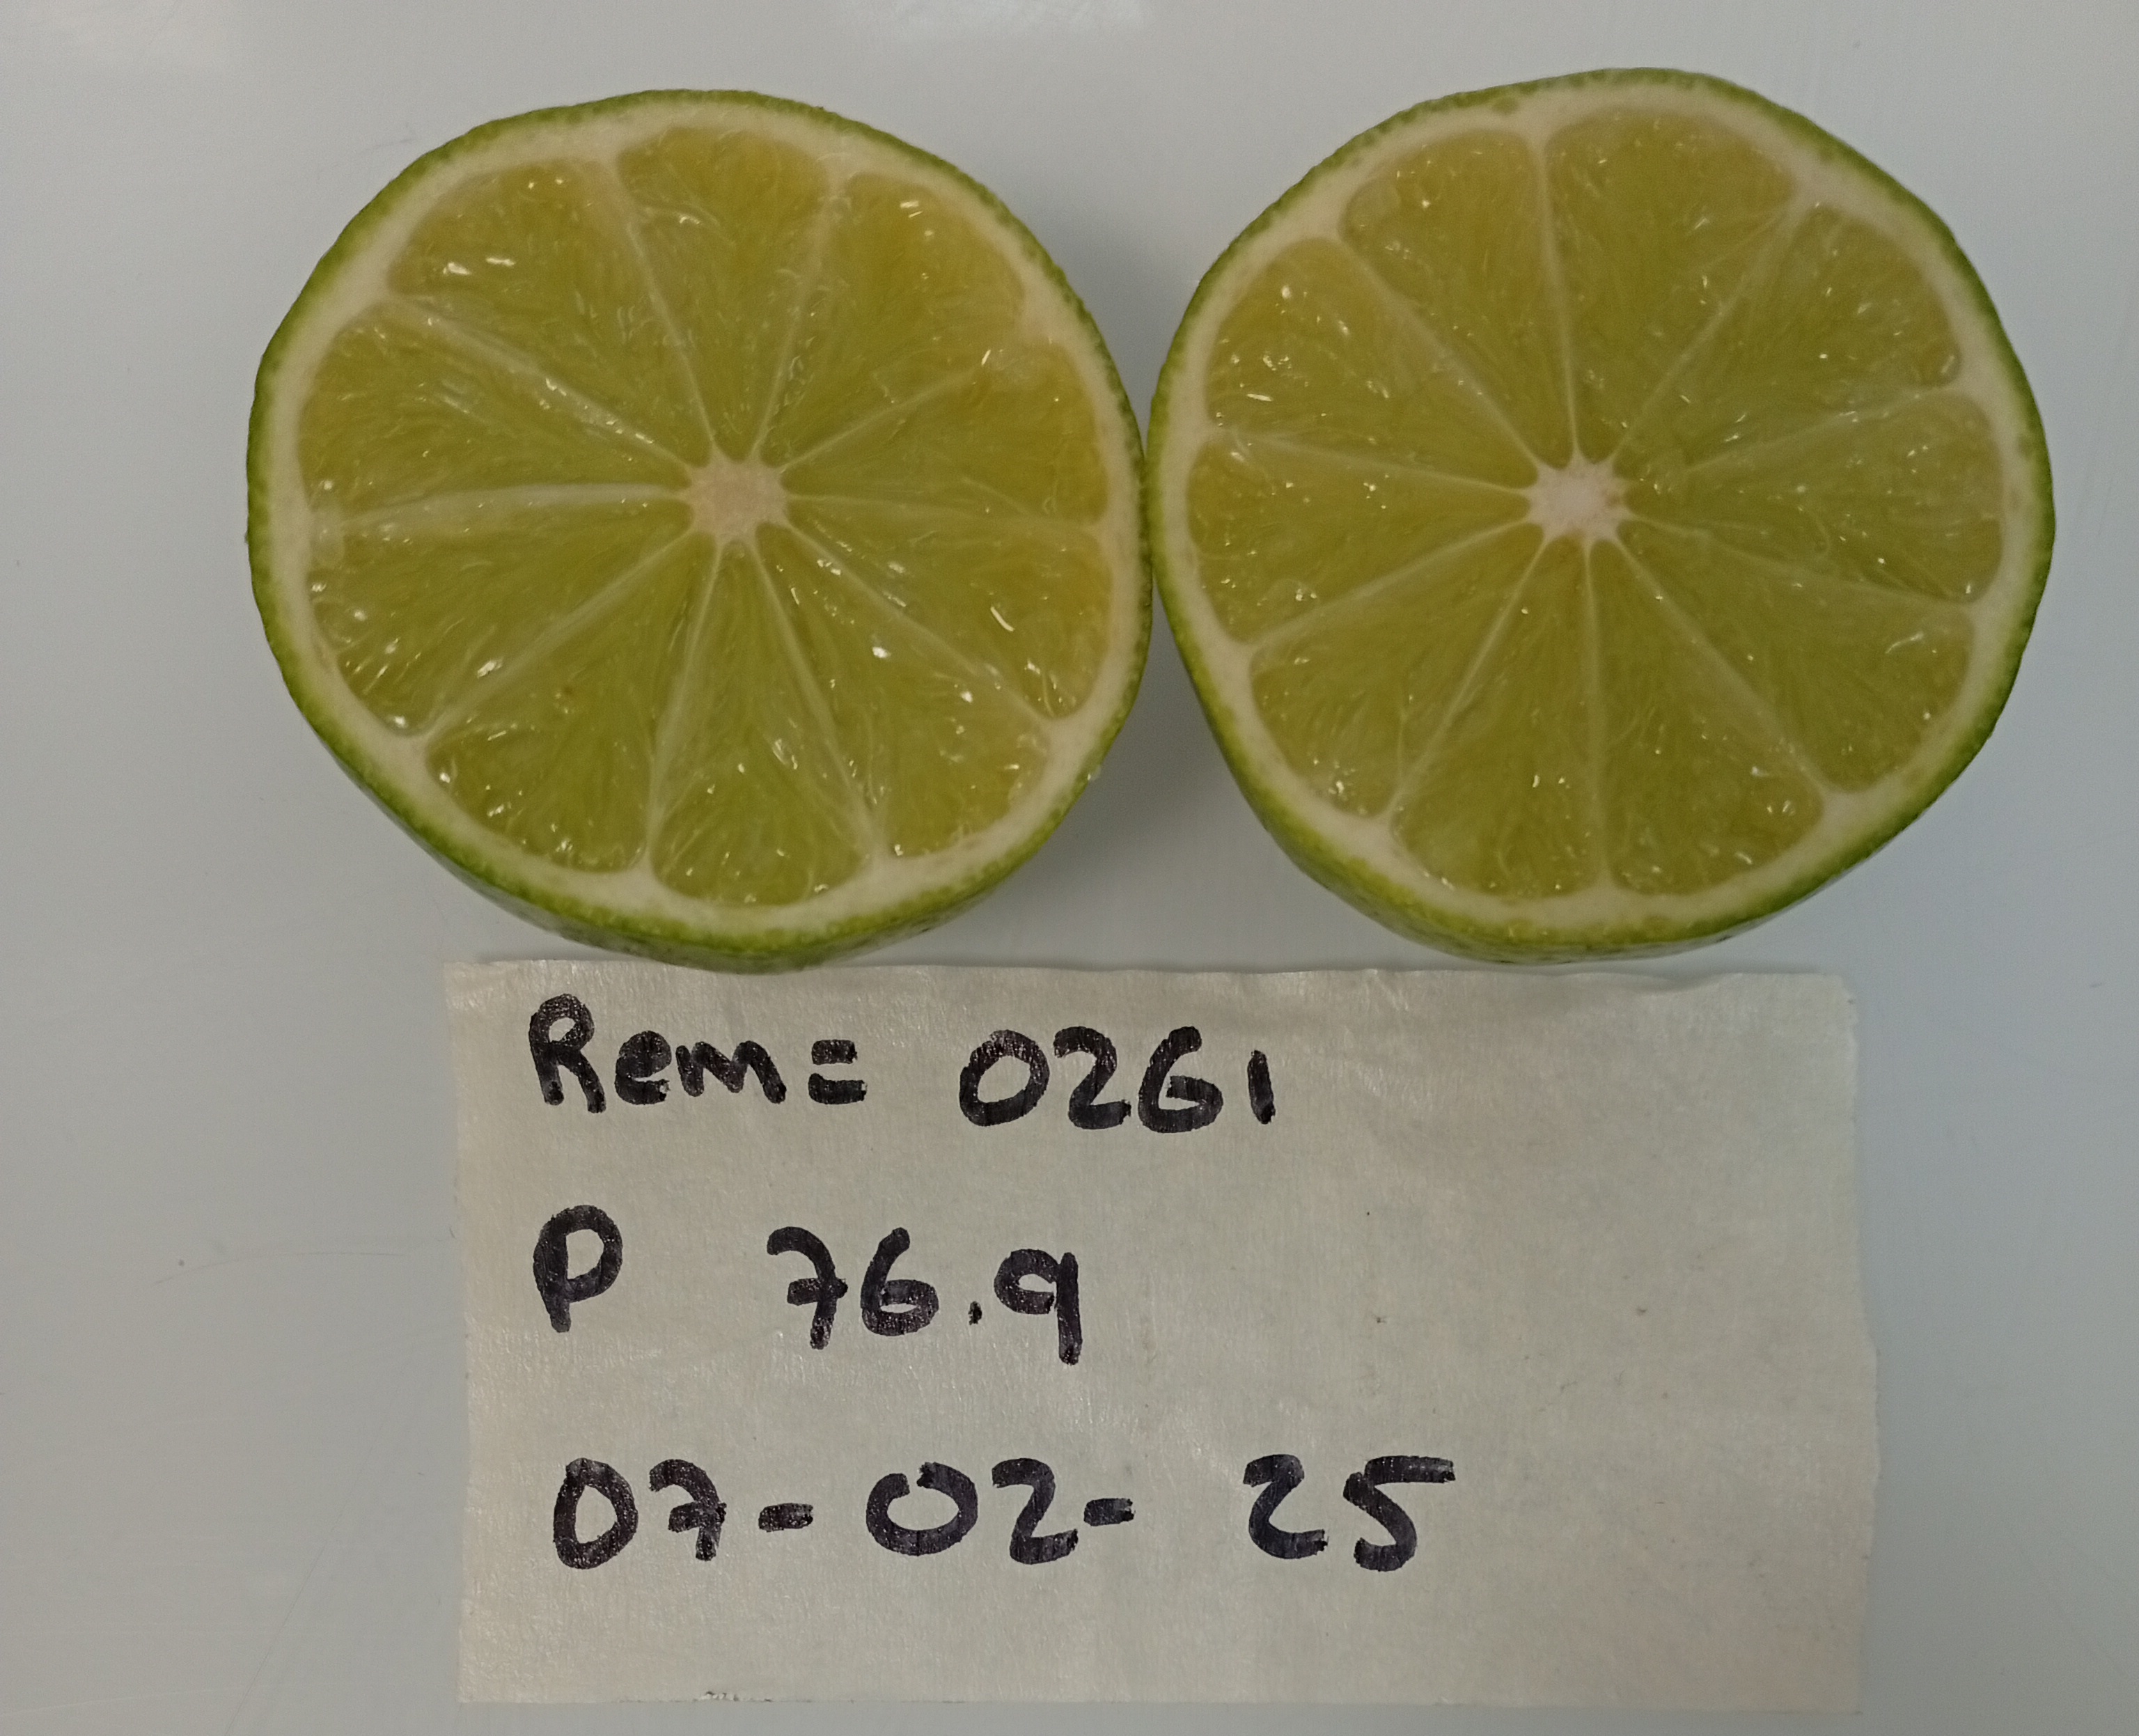 Rem= 0261
P 76.9
07-02-25